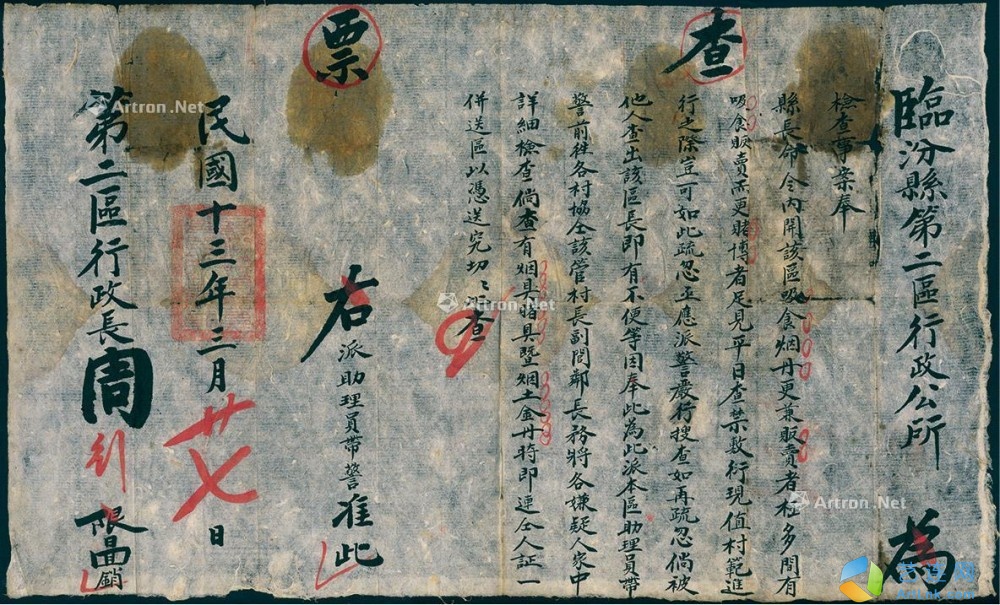 臨汾縣第二區行政公所 為
檢查事案奉
縣長命令內開該區吸食烟丹更兼販賣者極多間有
吸食販賣而更賭博者足見平日查禁敷衍現值村範進
行之際豈可如此疏忽亟應派警嚴行搜查如再疏忽倘被
他人查出該區長即有不便等因奉此為此派本區助理員帶
警前往各村協仝該管村長副閭鄰長務將各嫌疑人家中
詳細檢查倘查有烟具賭具暨烟土金丹時即連仝人証一
併送區以憑送究切切此查
查票
右派助理員帶警准此
民國十三年三月廿七日
第二區行政長周
限 回銷
Artron.Net
Artron.Net
Artron.Net
Artron.Net